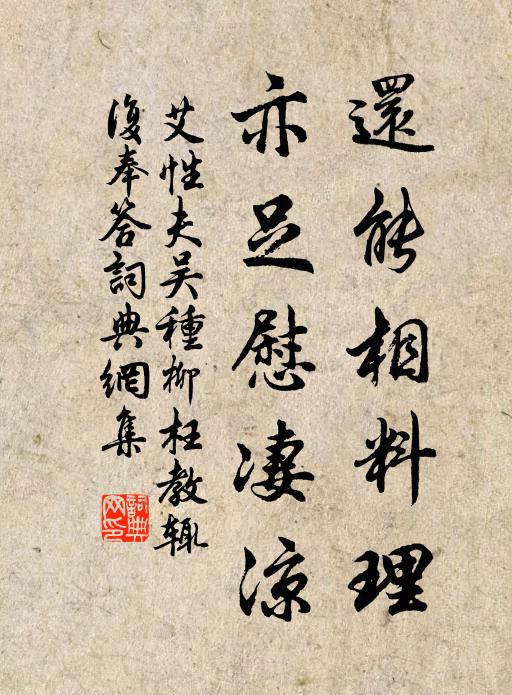 還能相料理
亦足慰凄涼
艾性夫吴種柳枉教輒
復奉答詞典網集
詞典
网印